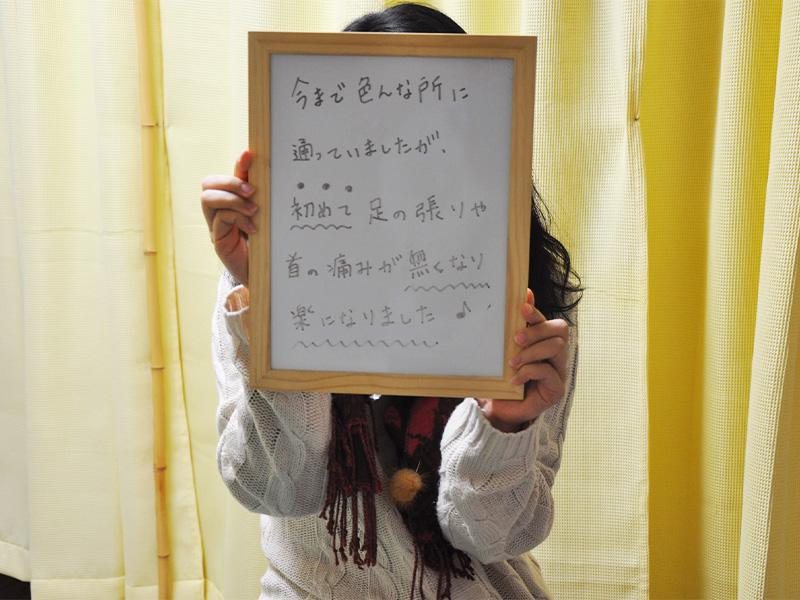 今まで色んな所に
通っていましたが、
初めて足の張りや
首の痛みが無くなり
楽になりました♪